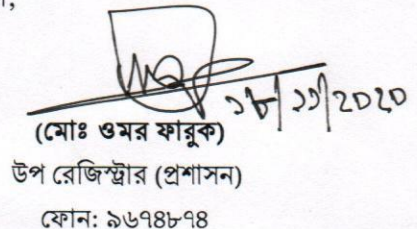 ১৮/১১/2020
(মোঃ ওমর ফারুক)
উপ রেজিস্ট্রার (প্রশাসন)
ফোন: ৯৬৭৪৮৭৪